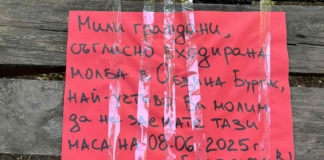 Мили граждани,
съгласно входирана
молба в Община Бургас,
най-учтиво Ви молим
да не заемате тази
маса на 08.06.2025г.